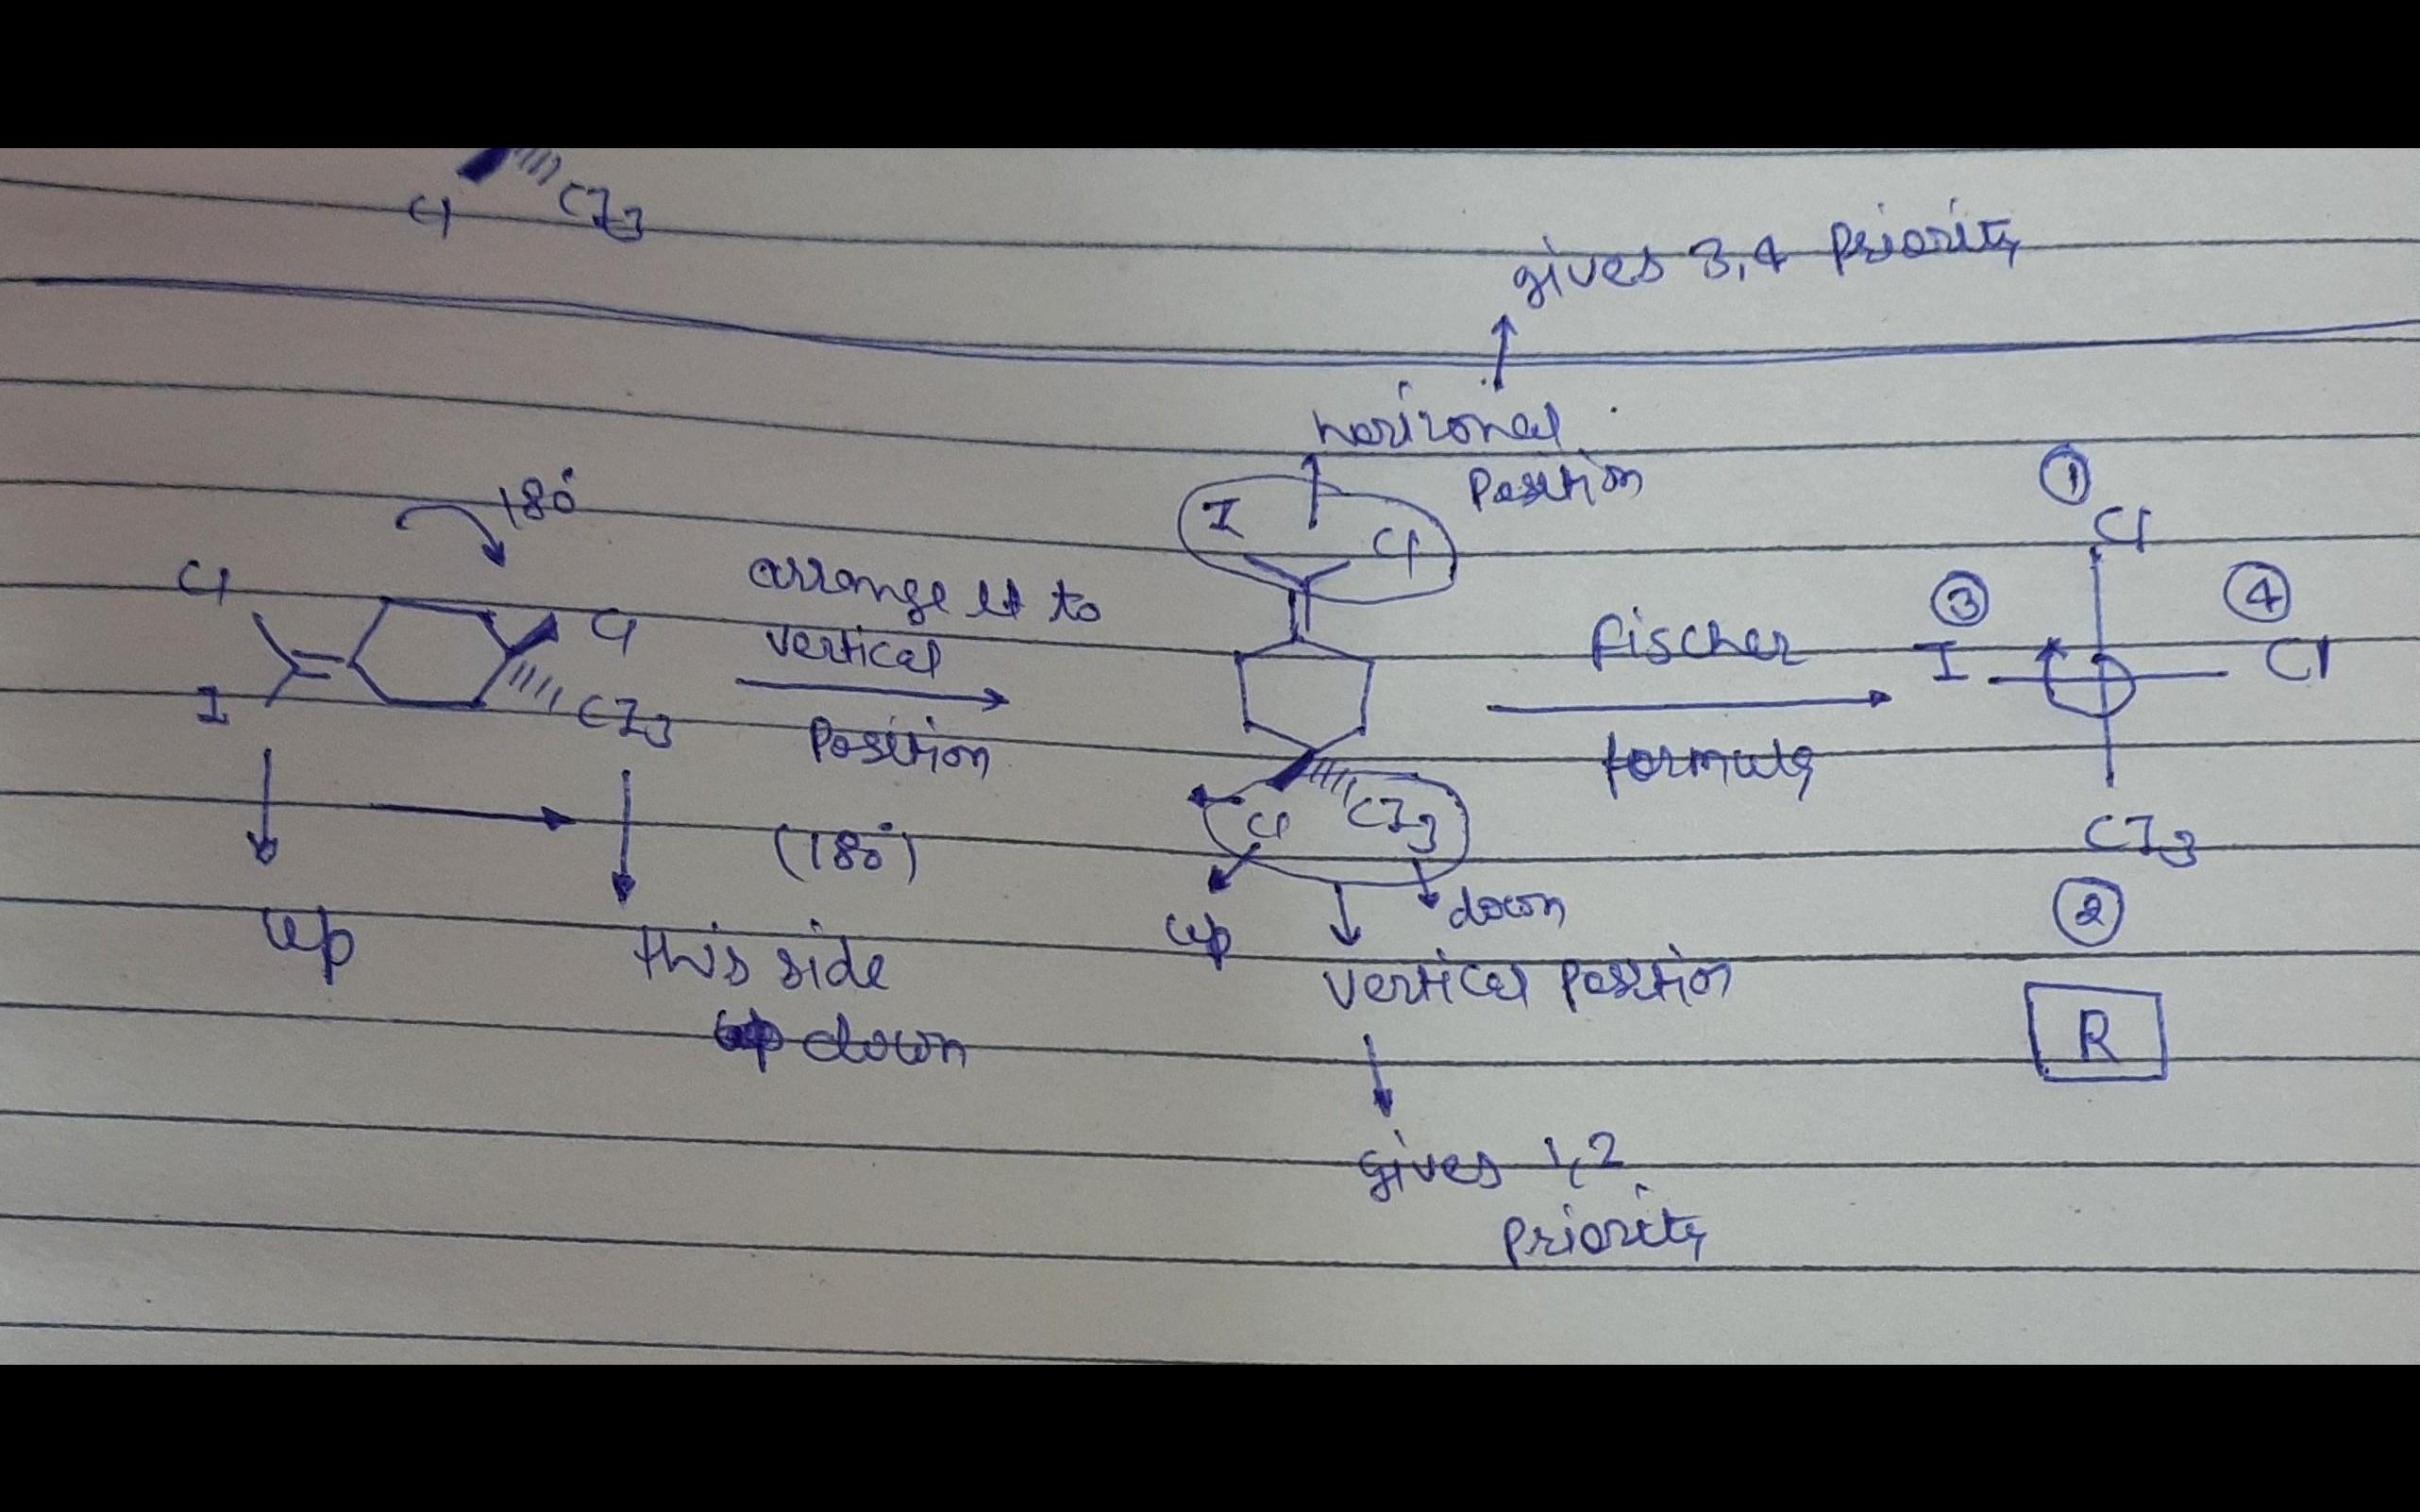 Cl
CI3
gives 3,4 Priority
horizonal
Position
180°
I
Cl
①
Cl
③
④
Cl
Cl
arrange it to
vertical
Position
(180°)
Fischer
formula
I
Cl
I
CI3
Cl
CI3
CI3
②
up
this side
down
up
down
vertical Position
R
gives 1,2
Priority